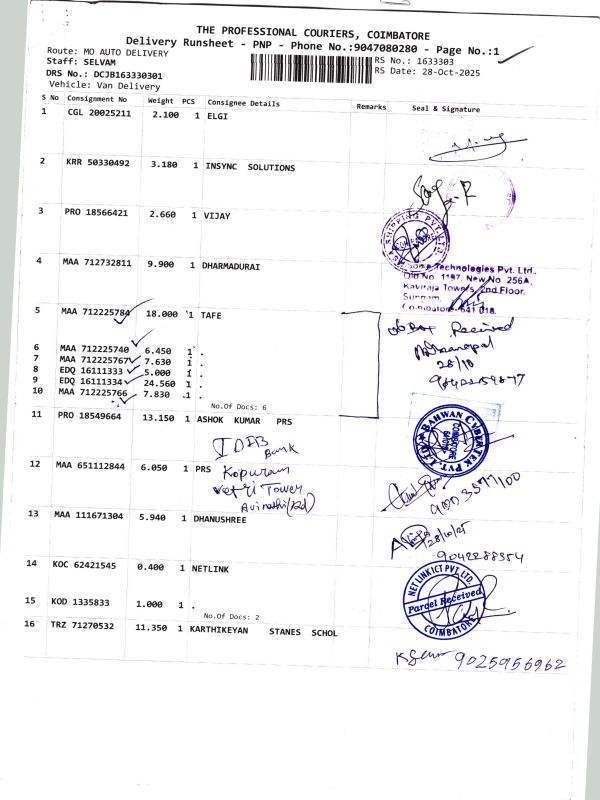 THE PROFESSIONAL COURIERS, COIMBATORE
Delivery Runsheet - PNP - Phone No.:9047080280 - Page No.:1
Route: MO AUTO DELIVERY
RS No.: 1633303
Staff: SELVAM
RS Date: 28-Oct-2025
DRS No.: DCJB163330301
Vehicle: Van Delivery
S No Consignment No Weight PCS Consignee Details Remarks Seal & Signature
1 CGL 20025211 2.100 1 ELGI
2 KRR 50330492 3.180 1 INSYNC SOLUTIONS
3 PRO 18566421 2.660 1 VIJAY
SHIPPING PVT. LTD.
4 MAA 712732811 9.900 1 DHARMADURAI
Technologies Pvt. Ltd.,
Old No. 1197, New No 256A,
Kaviraja Towers, 2nd Floor,
Coimbatore-641 018.
5 MAA 712225784 18.000 1 TAFE
Received
28/10
6 MAA 712225740 6.450 1 .
7 MAA 712225767 7.630 1 .
8 EDQ 16111333 5.000 1 .
9 EDQ 16111334 24.560 1 .
10 MAA 712225766 7.830 1 .
No.Of Docs: 6
11 PRO 18549664 13.150 1 ASHOK KUMAR PRS
BAHWAN CYBERTEK PVT. LTD
COIMBATORE
IDBI Bank
12 MAA 651112844 6.050 1 PRS
Kopuram
Vetri Tower
13 MAA 111671304 5.940 1 DHANUSHREE
28/10/25
9042288354
14 KOC 62421545 0.400 1 NETLINK
NET LINK ICT PVT. LTD.
Parcel Received
COIMBATORE
15 KOD 1335833 1.000 1 .
No.Of Docs: 2
16 TRZ 71270532 11.350 1 KARTHIKEYAN STANES SCHOL
9025956962